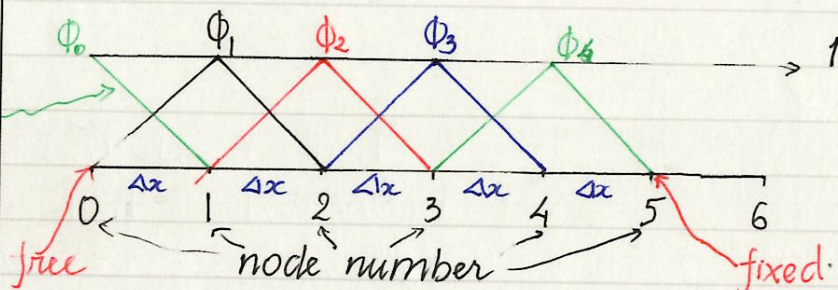 Φ₀ Φ₁ Φ₂ Φ₃ Φ₄
1
Δx Δx Δx Δx Δx
0 1 2 3 4 5 6
free node number fixed.